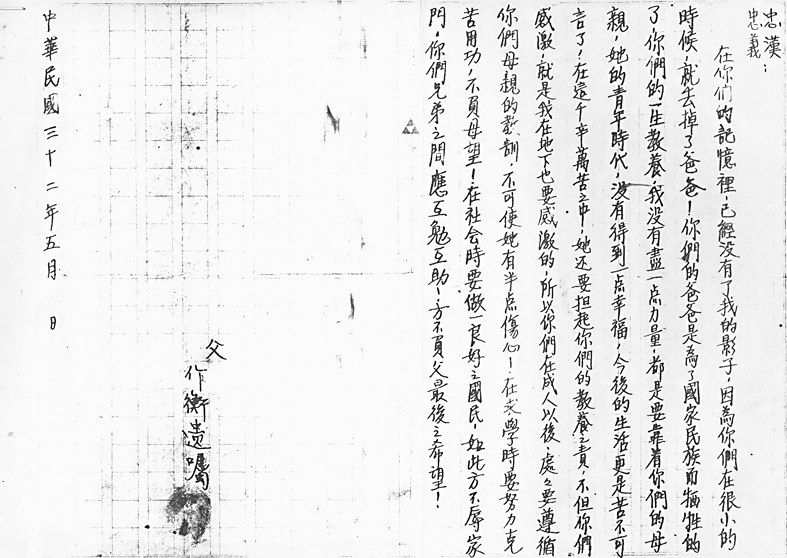 忠漢
忠義：
在你们的記憶裡，已經没有了我的影子，因為你們在很小的
時候，就去掉了爸爸！你們的爸爸是為了國家民族而牺牲的
了，你們的一生教養，我没有盡一点力量，都是要靠着你們的母
親，她的青年時代，没有得到一点幸福，今後的生活更是苦不可
言了，在這千辛萬苦之中，她还要担起你們的教養之責，不但你們
感激，就是我在地下也要感激的，所以你們在成人以後，處々要遵循
你們母親的教訓，不可使她有半点傷心！在求學時要努力克
苦用功，不負母望！在社会時要做一良好之國民，如此方不辱家
門，你們兄弟之間應互勉互助！方不負父最後之希望！
父
作衡遗囑
中華民國三十二年五月 日